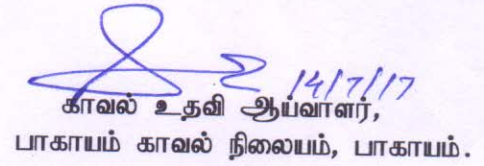 14/7/17
காவல் உதவி ஆய்வாளர்,
பாகாயம் காவல் நிலையம், பாகாயம்.